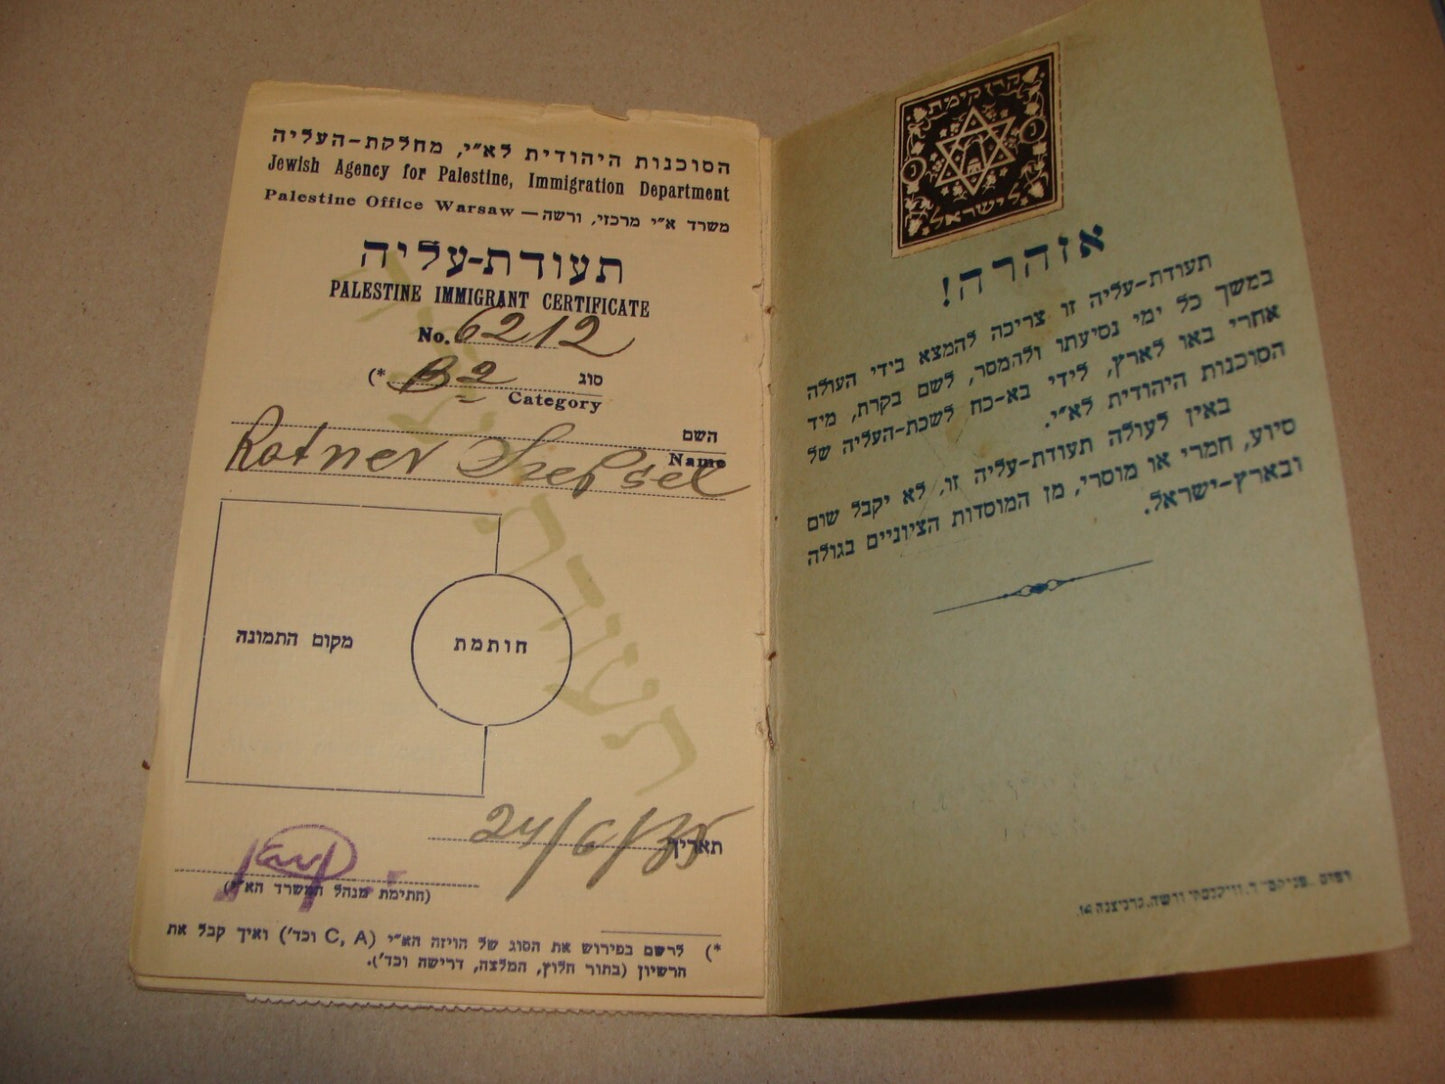 הסוכנות היהודית לא״י, מחלקת-העליה
Jewish Agency for Palestine, Immigration Department
Palestine Office Warsaw — משרד א״י מרכזי, ורשה
תעודת-עליה
PALESTINE IMMIGRANT CERTIFICATE
No. 6212
סוג B2 (*
Category
השם
Name
Ratner Szepsel
מקום התמונה
חותמת
תאריך 24/6/35
(חתימת מנהל המשרד הא״י)
*) לרשם בפירוש את הסוג של הויזה הא״י (C, A וכד') ואיך קבל את
הרשיון (בתור חלוץ, המלצה, דרישה וכד').
תעודת עליה
קרן קימת
לישראל
אזהרה!
תעודת-עליה זו צריכה להמצא בידי העולה
במשך כל ימי נסיעתו ולהמסר, לשם בקרת, מיד
אחרי באו לארץ, לידי בא-כח לשכת-העליה של
הסוכנות היהודית לא״י.
באין לעולה תעודת-עליה זו, לא יקבל שום
סיוע, חמרי או מוסרי, מן המוסדות הציוניים בגולה
ובארץ-ישראל.